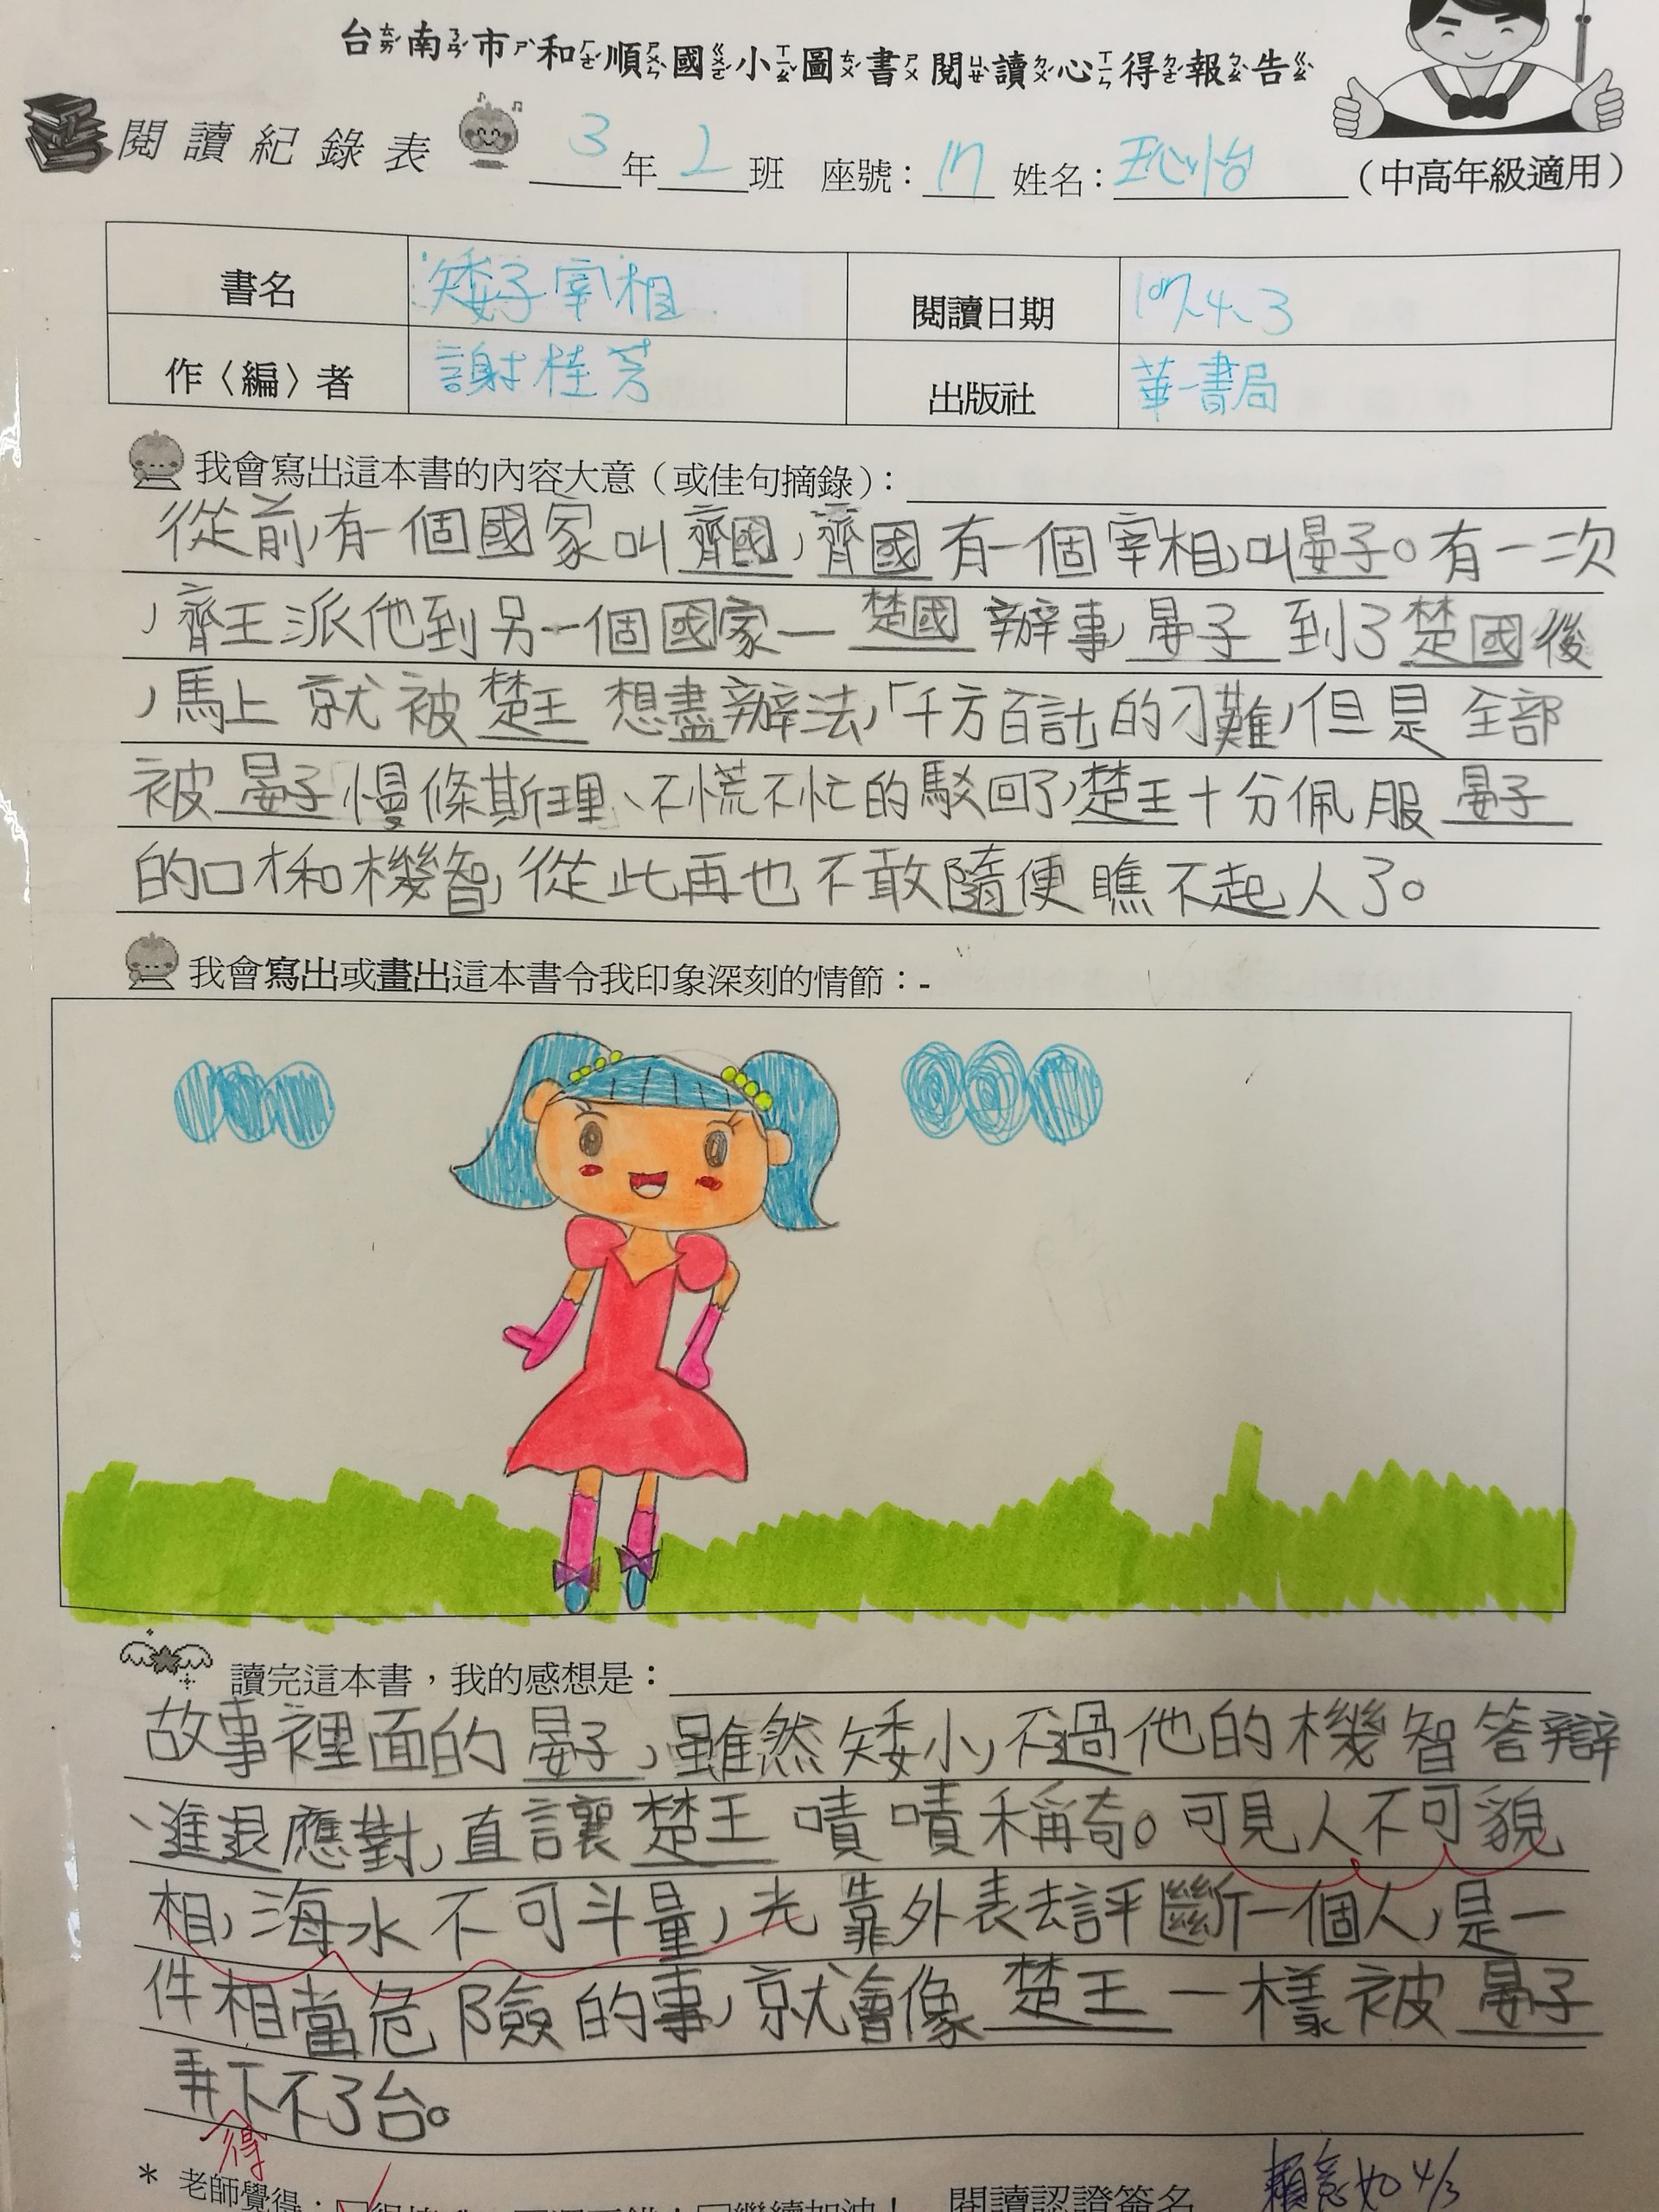 台南市和順國小圖書閱讀心得報告
閱讀紀錄表 3年2班 座號：17 姓名：王心怡 （中高年級適用）
書名 矮子宰相 閱讀日期 107.4.3
作〈編〉者 謝桂芳 出版社 華一書局
我會寫出這本書的內容大意（或佳句摘錄）：
從前，有一個國家叫齊國，齊國有一個宰相，叫晏子。有一次
，齊王派他到另一個國家—楚國辦事，晏子到了楚國後
，馬上就被楚王想盡辦法，「千方百計的刁難，但是全部
被晏子慢條斯理、不慌不忙的駁回了，楚王十分佩服晏子
的口才和機智，從此再也不敢隨便瞧不起人了。
我會寫出或畫出這本書令我印象深刻的情節：-
讀完這本書，我的感想是：
故事裡面的晏子，雖然矮小，不過他的機智答辯
、進退應對，直讓楚王嘖嘖稱奇。可見人不可貌
相，海水不可斗量，光靠外表去評斷一個人，是一
件相當危險的事，就會像楚王一樣被晏子
弄下不了台。
得
* 老師覺得： 繼續加油！ 閱讀認證簽名 4/3